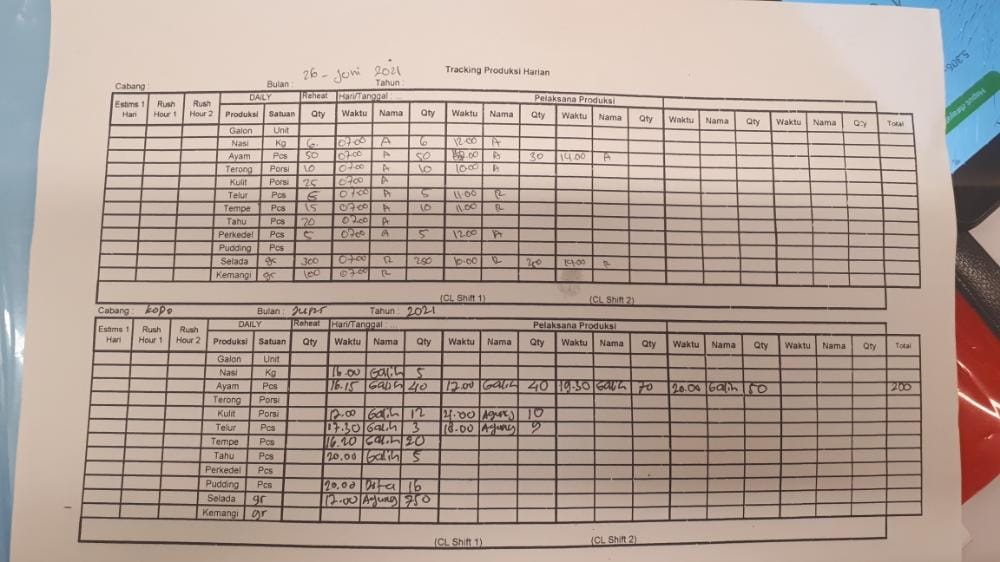 Tracking Produksi Harian
Cabang : Bulan : 26 - Juni 2021 Tahun :
Estims 1 Hari Rush Hour 1 Rush Hour 2 DAILY Reheat Hari/Tanggal : ... Pelaksana Produksi
Produksi Satuan Qty Waktu Nama Qty Waktu Nama Qty Waktu Nama Qty Waktu Nama Qty Waktu Nama Qty Total
Galon Unit
Nasi Kg 6 0700 A 6 12.00 A
Ayam Pcs 50 0700 A 50 .00 A 30 14.00 A
Terong Porsi 10 0700 A 10 1000 A
Kulit Porsi 25 0700 A
Telur Pcs 5 0700 A 5 11.00 R
Tempe Pcs 15 0700 A 10 11.00 R
Tahu Pcs 20 0700 A
Perkedel Pcs 5 0700 A 5 1200 A
Pudding Pcs
Selada gr 300 0700 R 250 10.00 R 250 14.00 R
Kemangi gr 100 0700 R
(CL Shift 1) (CL Shift 2)
Cabang : Kopo Bulan : Juni Tahun : 2021
Estims 1 Hari Rush Hour 1 Rush Hour 2 DAILY Reheat Hari/Tanggal : ... Pelaksana Produksi
Produksi Satuan Qty Waktu Nama Qty Waktu Nama Qty Waktu Nama Qty Waktu Nama Qty Waktu Nama Qty Total
Galon Unit
Nasi Kg 16.00 Galih 5
Ayam Pcs 16.15 Galih 40 17.00 Galih 40 19.30 Galih 70 20.00 Galih 50 200
Terong Porsi
Kulit Porsi 17.00 Galih 12 21.00 Agung 10
Telur Pcs 17.30 Galih 3 18.00 Agung 9
Tempe Pcs 16.20 Galih 20
Tahu Pcs 20.00 Galih 5
Perkedel Pcs
Pudding Pcs 20.00 16
Selada gr 17.00 Agung 750
Kemangi gr
(CL Shift 1) (CL Shift 2)